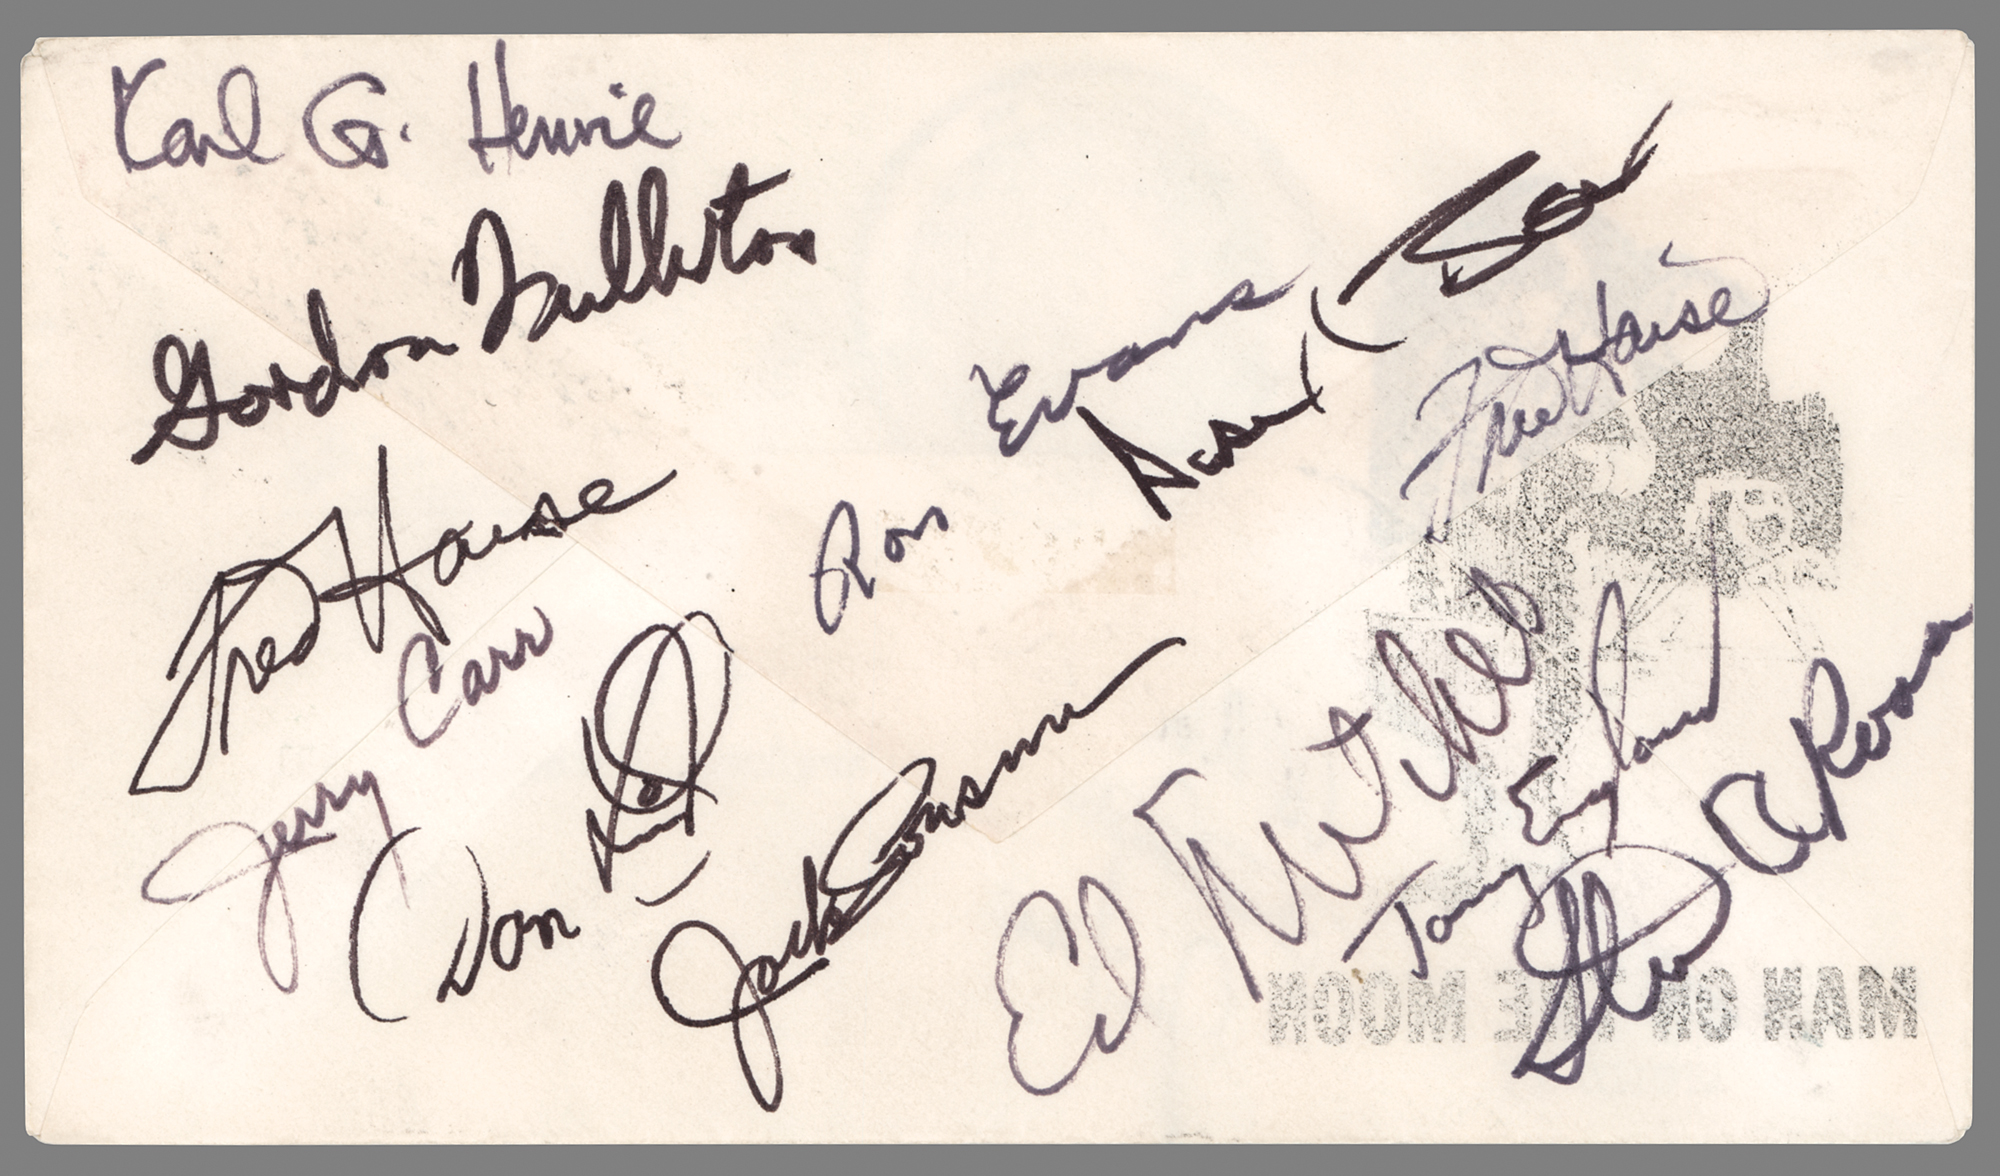 Karl G. Henize
Gordon Fullerton
Fred Haise
Jerry Carr
Don Lind
Jack Lousma
Ron Evans
Fred Haise
Ed Mitchell
Tony England
Stu Roosa
MAN ON THE MOON